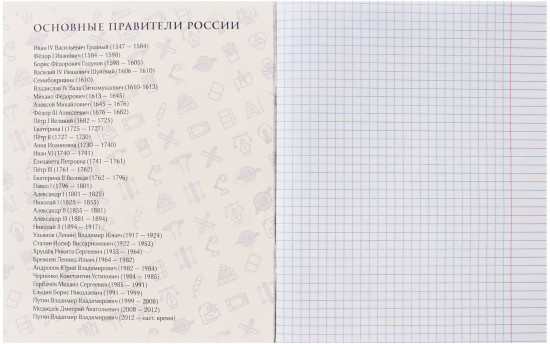 ОСНОВНЫЕ ПРАВИТЕЛИ РОССИИ
Иван IV Васильевич Грозный (1547 — 1584)
Фёдор I Иванович (1584 — 1598)
Борис Фёдорович Годунов (1598 — 1605)
Василий IV Иванович Шуйский (1606 — 1610)
Семибоярщина (1610)
Владислав IV Ваза Сигизмундович (1610-1613)
Михаил Федорович (1613 — 1645)
Алексей Михайлович (1645 — 1676)
Фёдор III Алексеевич (1676 — 1682)
Пётр I Великий (1682 — 1725)
Екатерина I (1725 — 1727)
Пётр II (1727 — 1730)
Анна Иоанновна (1730 — 1740)
Иван VI (1740 — 1741)
Елизавета Петровна (1741 — 1761)
Пётр III (1761 — 1762)
Екатерина II Великая (1762 — 1796)
Павел I (1796 — 1801)
Александр I (1801 — 1825)
Николай I (1825 — 1855)
Александр II (1855 — 1881)
Александр III (1881 — 1894)
Николай II (1894 — 1917)
Ульянов (Ленин) Владимир Ильич (1917 — 1924)
Сталин Иосиф Виссарионович (1922 — 1953)
Хрущёв Никита Сергеевич (1953 — 1964)
Брежнев Леонид Ильич (1964 — 1982)
Андропов Юрий Владимирович (1982 — 1984)
Черненко Константин Устинович (1984 — 1985)
Горбачёв Михаил Сергеевич (1985 — 1991)
Ельцин Борис Николаевич (1991 — 1999)
Путин Владимир Владимирович (1999 — 2008)
Медведев Дмитрий Анатольевич (2008 — 2012)
Путин Владимир Владимирович (2012 — наст. время)